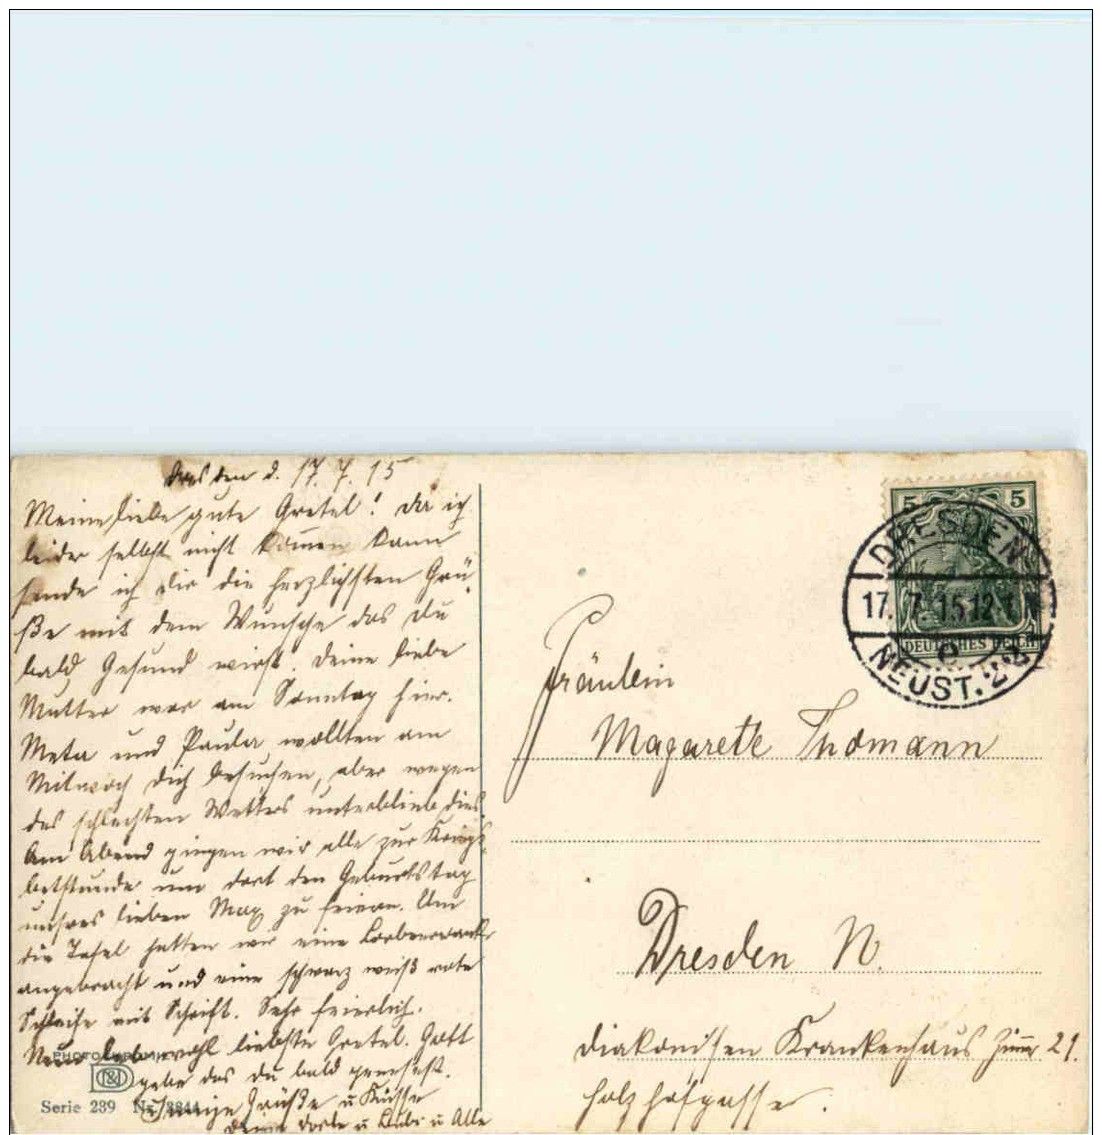 Dresden d. 17. 7. 15
Meine liebe gute Gretel! Da ich
leider selbst nicht kommen kann
sende ich dir die herzlichsten Grü-
ße mit dem Wunsche das du
bald Gesund wirst. Deine liebe
Mutter war am Sonntag hier.
Meta und Paula wollten am
Mitwoch dich besuchen, aber wegen
des schlechten Wetters unterblieb dies.
Am Abend gingen wir alle zur Kriegs-
betstunde um dort den Geburtstag
unsres lieben Max zu feiern. Um
die Tafel hatten wir eine
angebracht und eine schwarz weiß rote
Schleife mit Schrift. Sehr feierlich.
Nun leb wohl liebste Gretel. Gott
gebe das du bald genesest.
Innige Grüße u Küsse
Deine u u Alle
Serie 239 Nr. 3844
5 5
DEUTSCHES REICH
DRESDEN
17. 7. 15 12-1 N
NEUST. 22
Fräulein
Magarete Thomann
Dresden N.
Diakonissen Krankenhaus Zimmer 21.
Holzhofgasse.